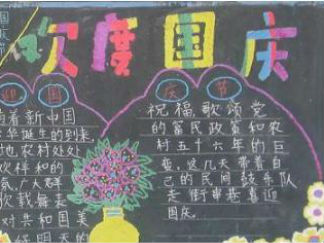 欢度国庆
迎国
庆节
着新中国
华诞生的到来,
也农村处处
欢祥和的
氛,广大群
欢载舞表
对共和国美
明天的
祝福,歌颂党
的富民政策和农
村五十六年的巨
变,这几天带着自
己的民间鼓手队
走街串巷喜迎
国庆。